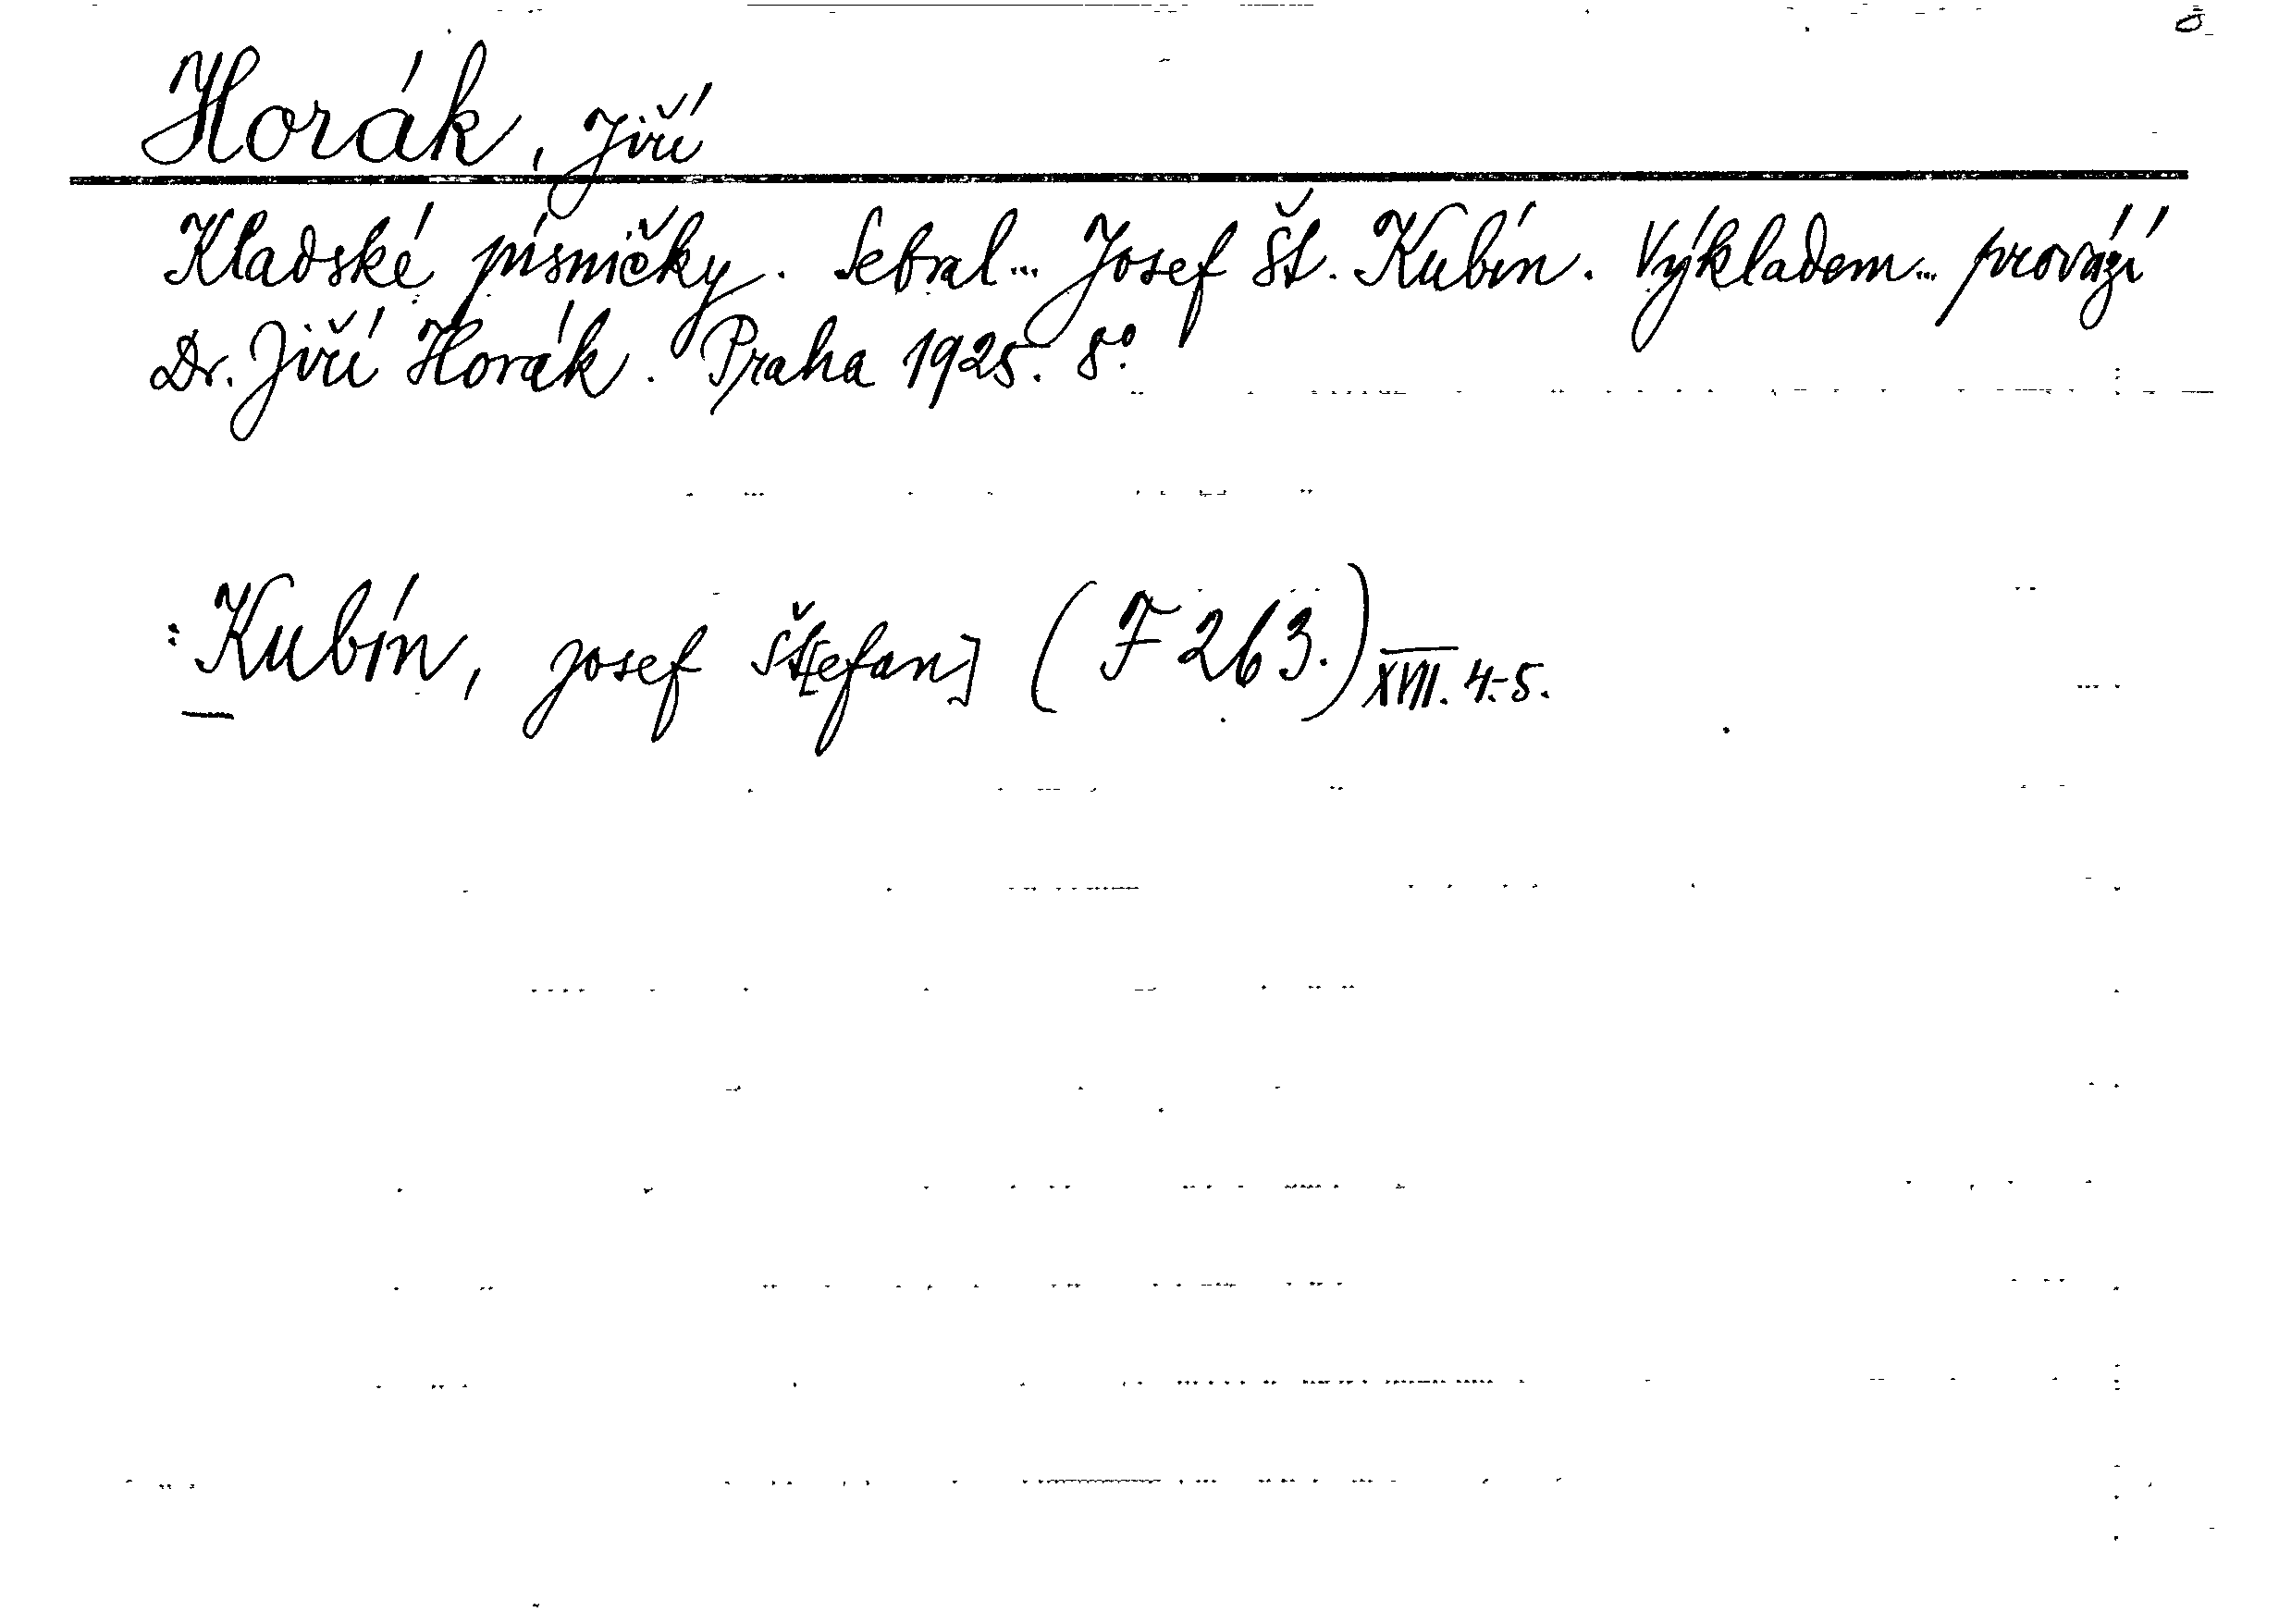 Horák, Jiří
Kladské písničky. Sebral... Josef Št. Kubín. Výkladem... provází
Dr. Jiří Horák. Praha 1925. 8°
: Kubín, Josef Št[efan] (F 263.) XVII. 4.-5.